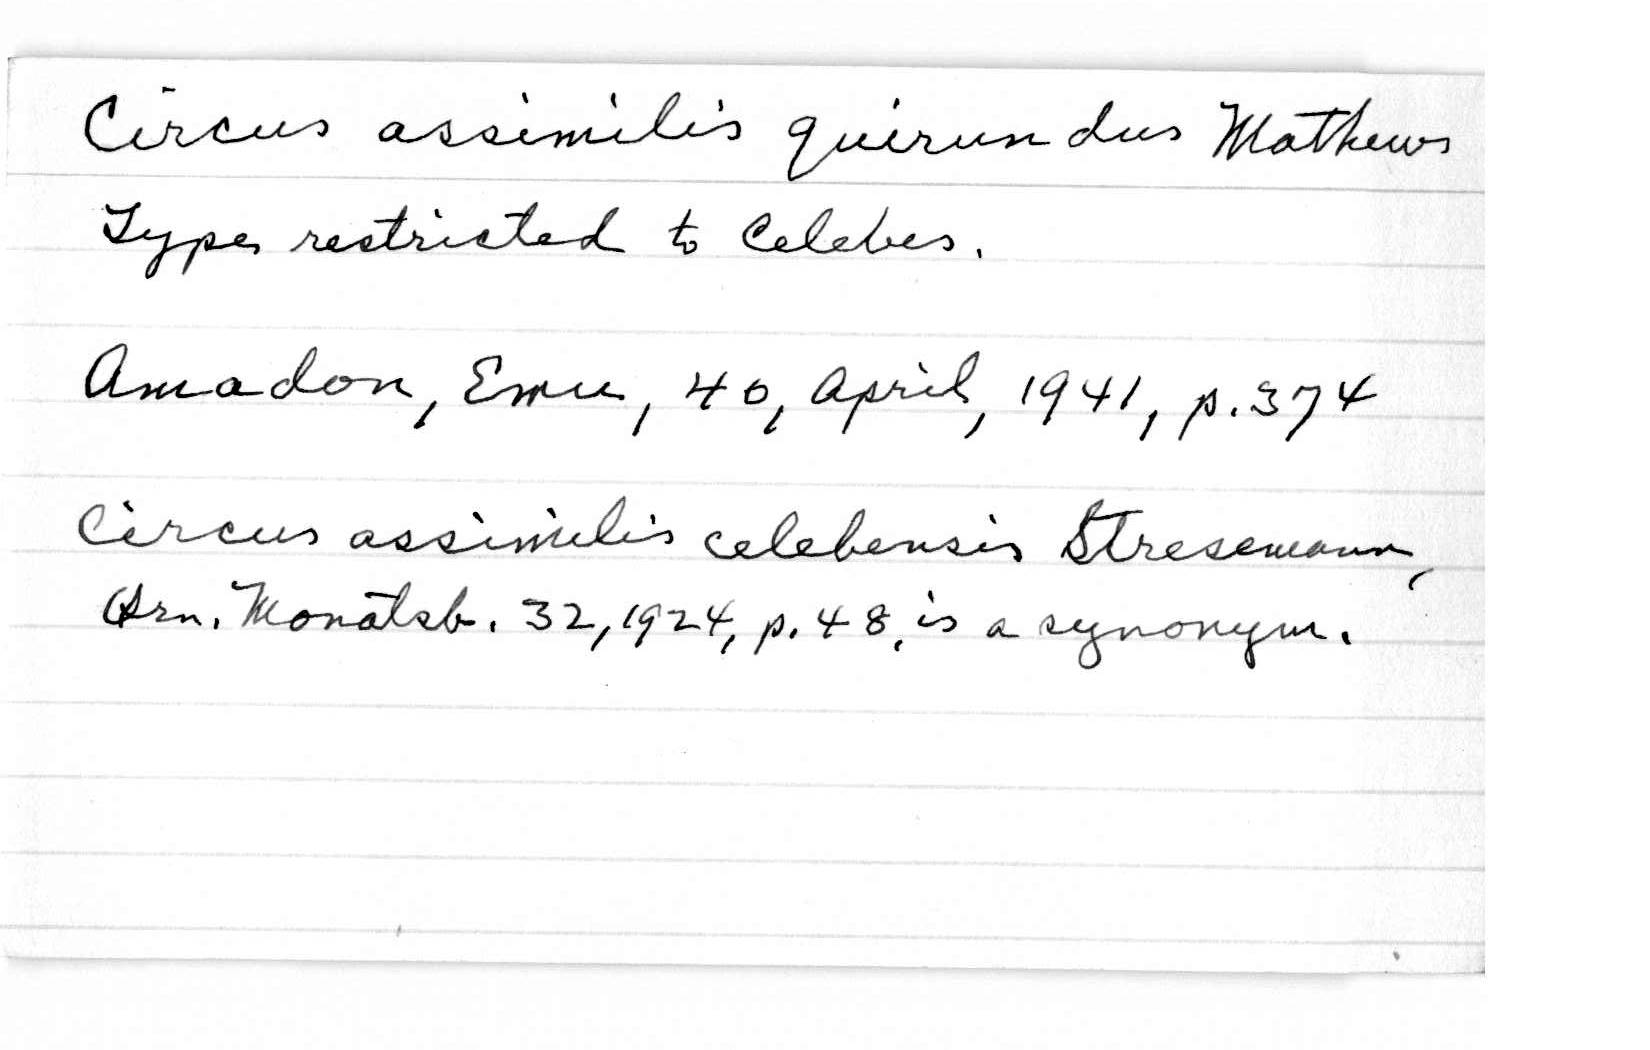 Circus assimilis quirundus Mathews
Type restricted to Celebes.
Amadon, Emu, 40, April, 1941, p. 374
Circus assimilis celebensis Stresemann,
Orn. Monatsb. 32, 1924, p. 48, is a synonym.